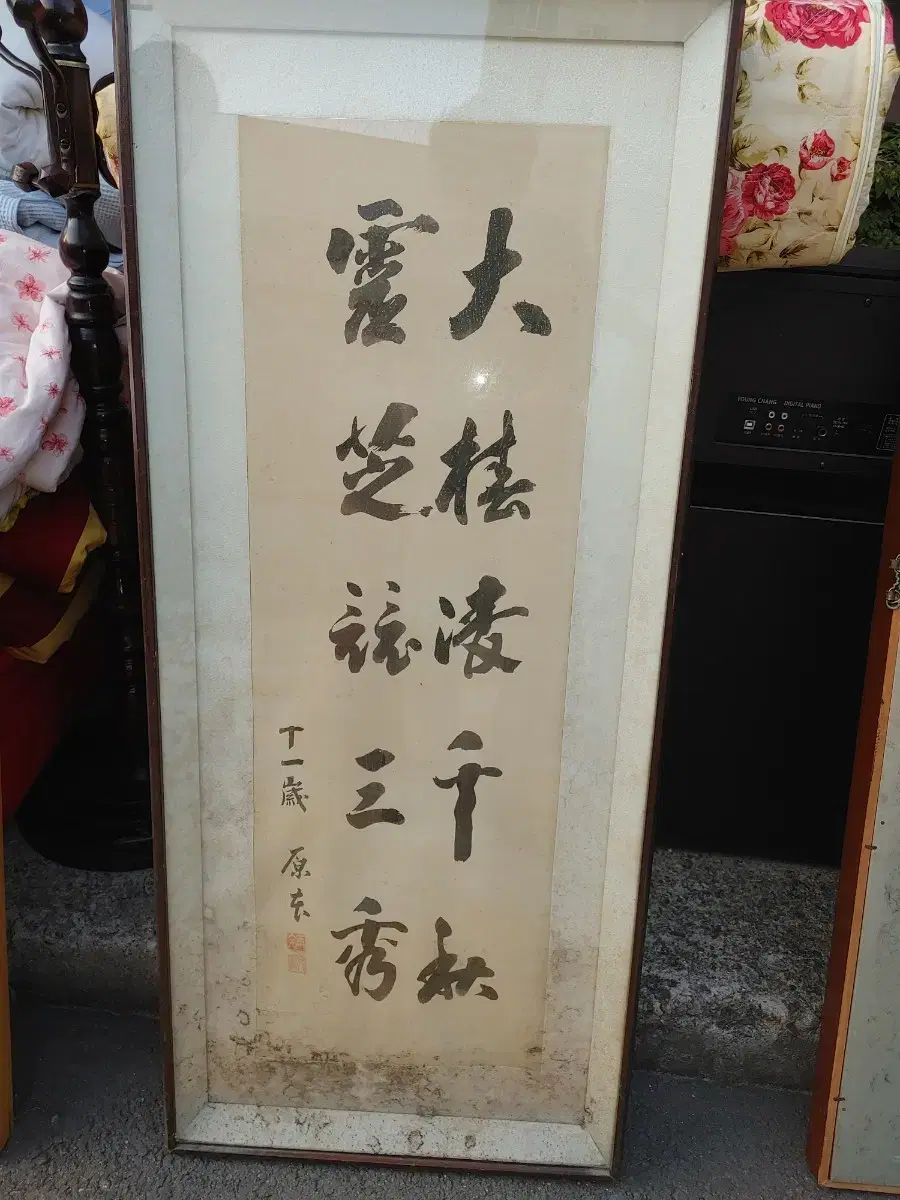 大椿凌千秋
靈芝三秀
十一歲 原
YOUNG CHANG DIGITAL PIANO